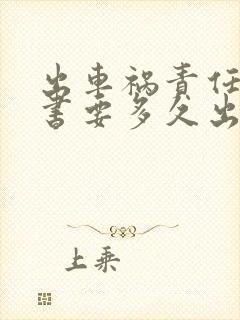 出車祸責任
書要多久出
上乘